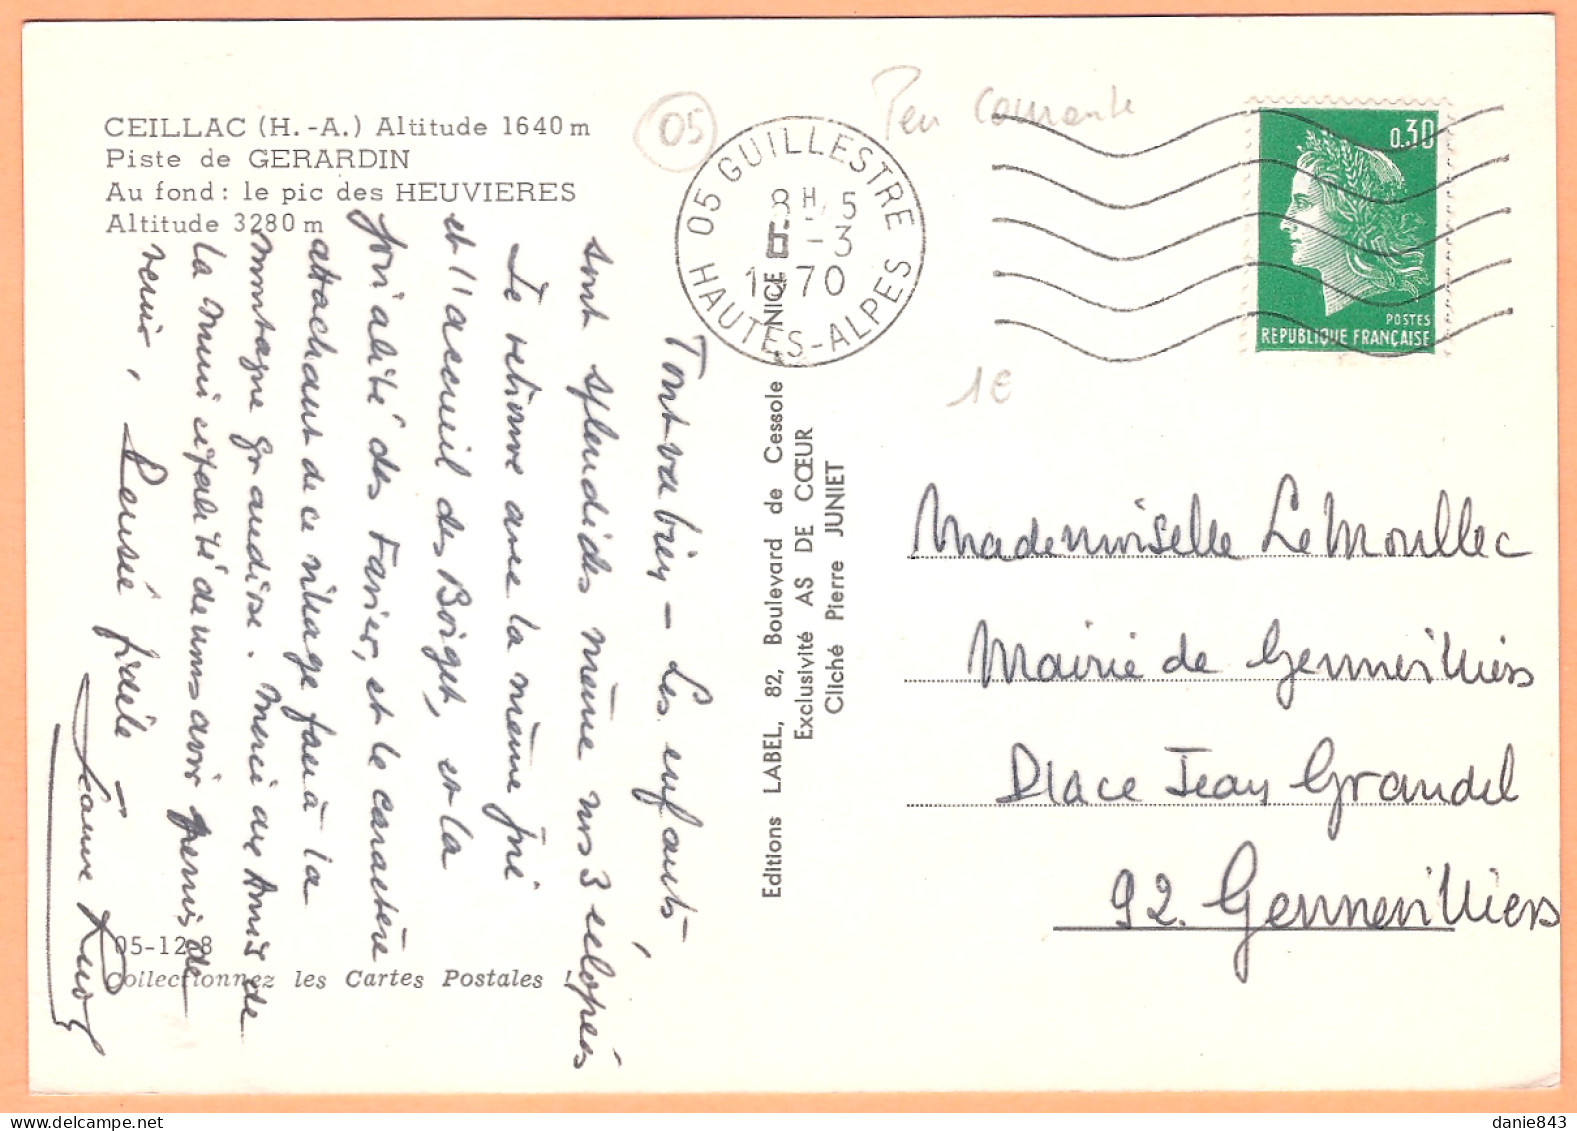 CEILLAC (H.-A.) Altitude 1640 m
Piste de GERARDIN
Au fond : le pic des HEUVIERES
Altitude 3280 m
05
Peu courante
05 GUILLESTRE
8H 5
-3
1970
HAUTES-ALPES
0,30
POSTES
REPUBLIQUE FRANÇAISE
1€
Tout va bien - Les enfants
sont splendides même nos 3 éclopés
Je retrouve avec la même joie
et l'accueil des Boiget, et la
jovialité des Favier, et le caractère
attachant de ce village face à la
montagne grandiose. Merci aux Amis de
la municipalité de nous avoir permis de
venir. Pensée fidèle -
Jeanne
Editions LABEL, 82, Boulevard de Cessole NICE
Exclusivité AS DE CŒUR
Cliché Pierre JUNIET
Mademoiselle Le Moullec
Mairie de Gennevilliers
Place Jean Grandel
92. Gennevilliers
05-128
Collectionnez les Cartes Postales !
danie843